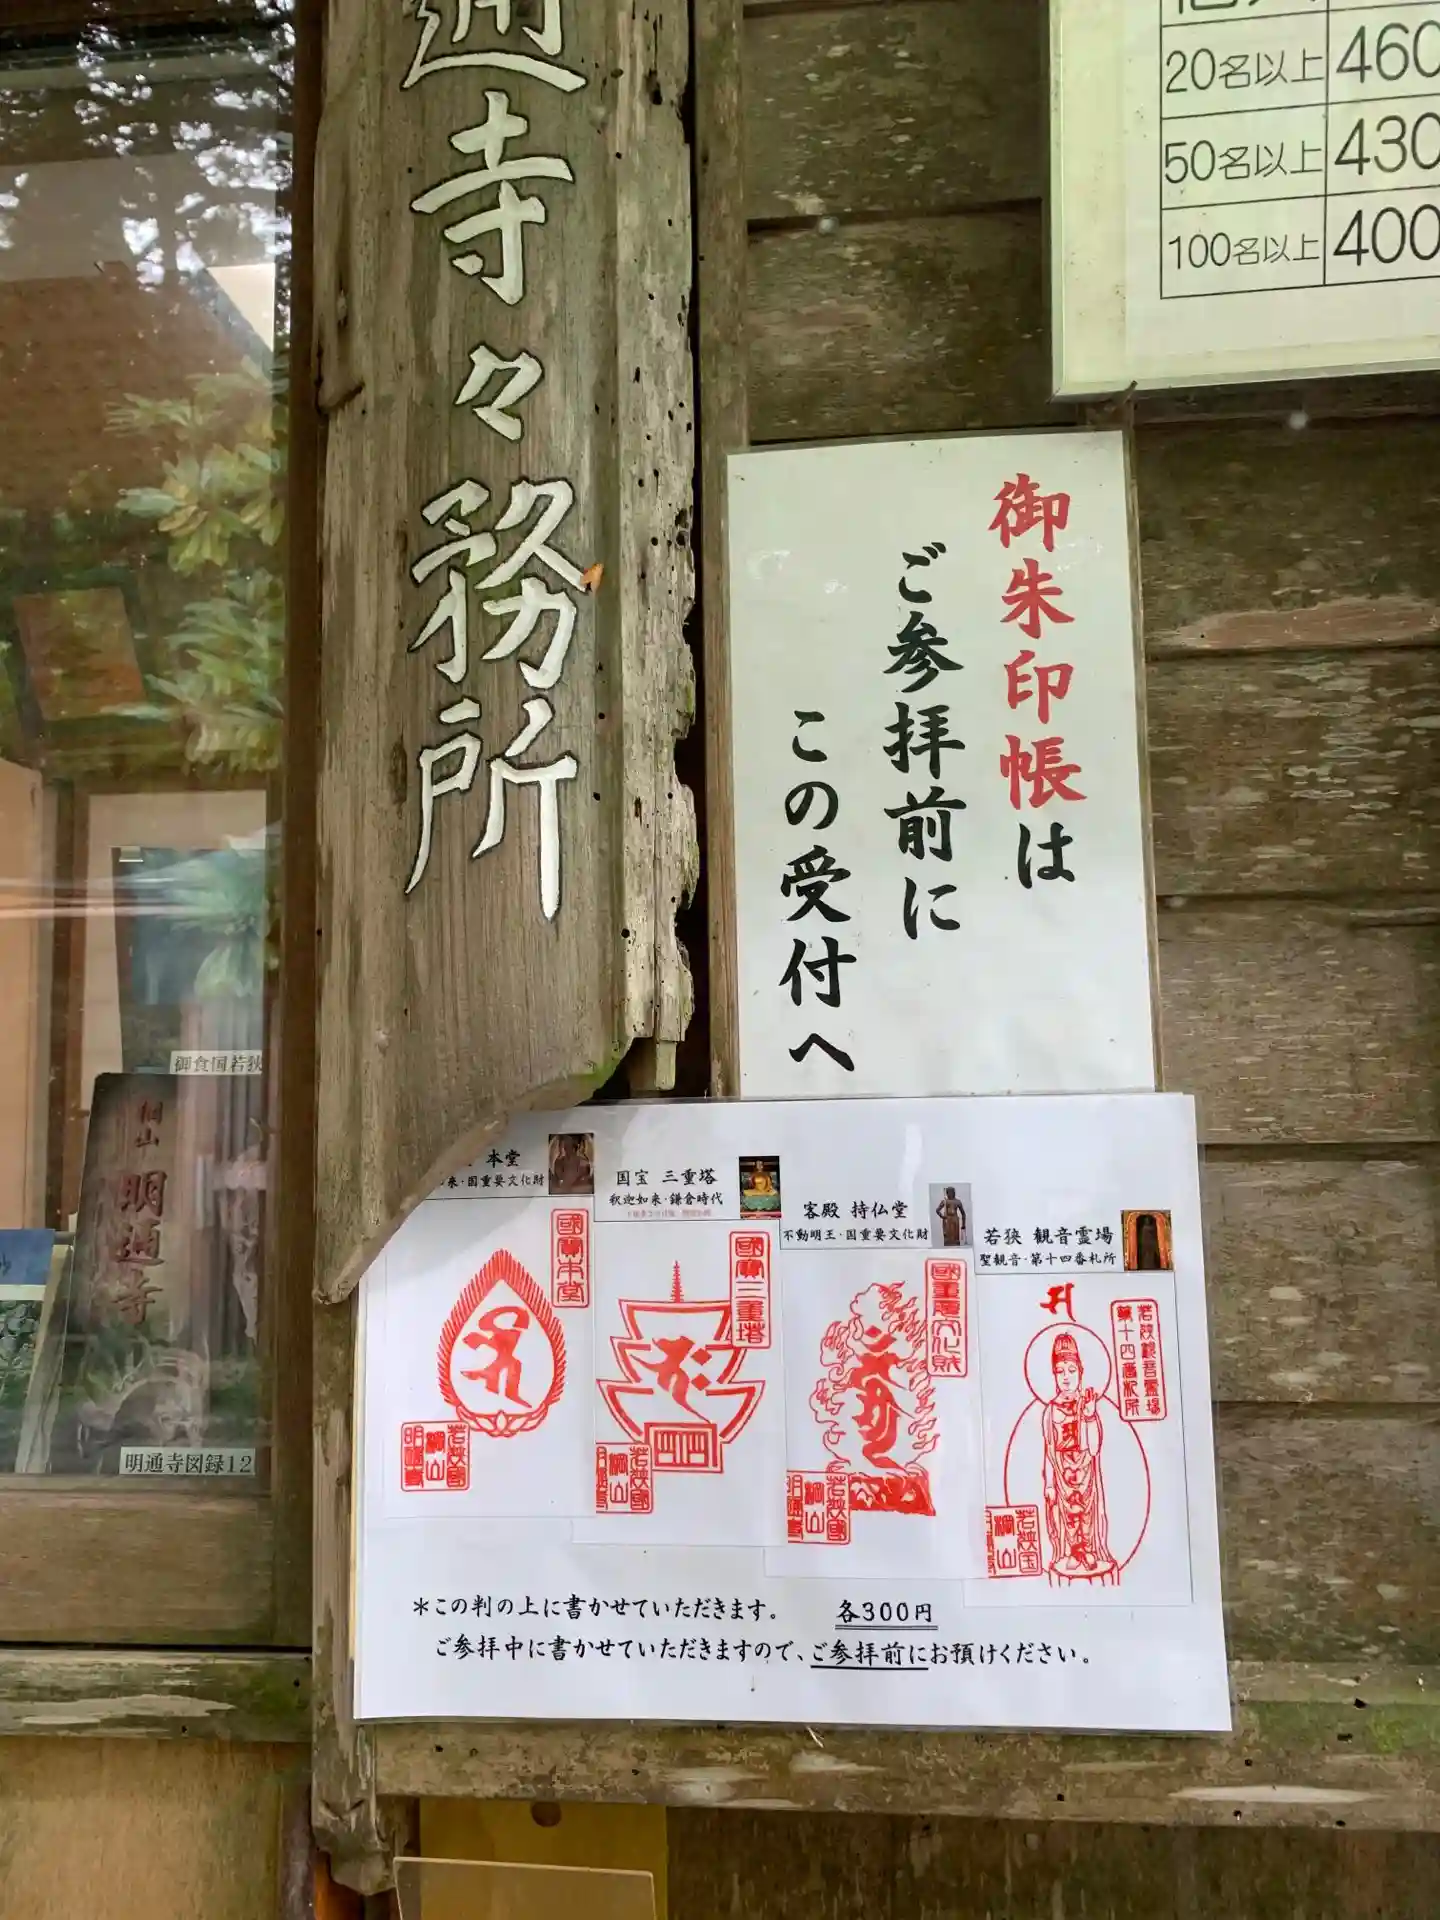 通寺々務所
20名以上 460
50名以上 430
100名以上 400
御朱印帳は
ご参拝前に
この受付へ
本堂
来・国重要文化財
国宝 三重塔
釈迦如来・鎌倉時代
客殿 持仏堂
不動明王・国重要文化財
若狭 観音霊場
聖観音・第十四番札所
國寶本堂
國寶三重塔
國重要文化財
若狭観音霊場
第十四番札所
若狭國
棡山
明通寺
若狭國
棡山
明通寺
若狭國
棡山
明通寺
若狭国
棡山
*この判の上に書かせていただきます。 各300円
ご参拝中に書かせていただきますので、ご参拝前にお預けください。
御食国若狭
棡山
明通寺
明通寺図録12